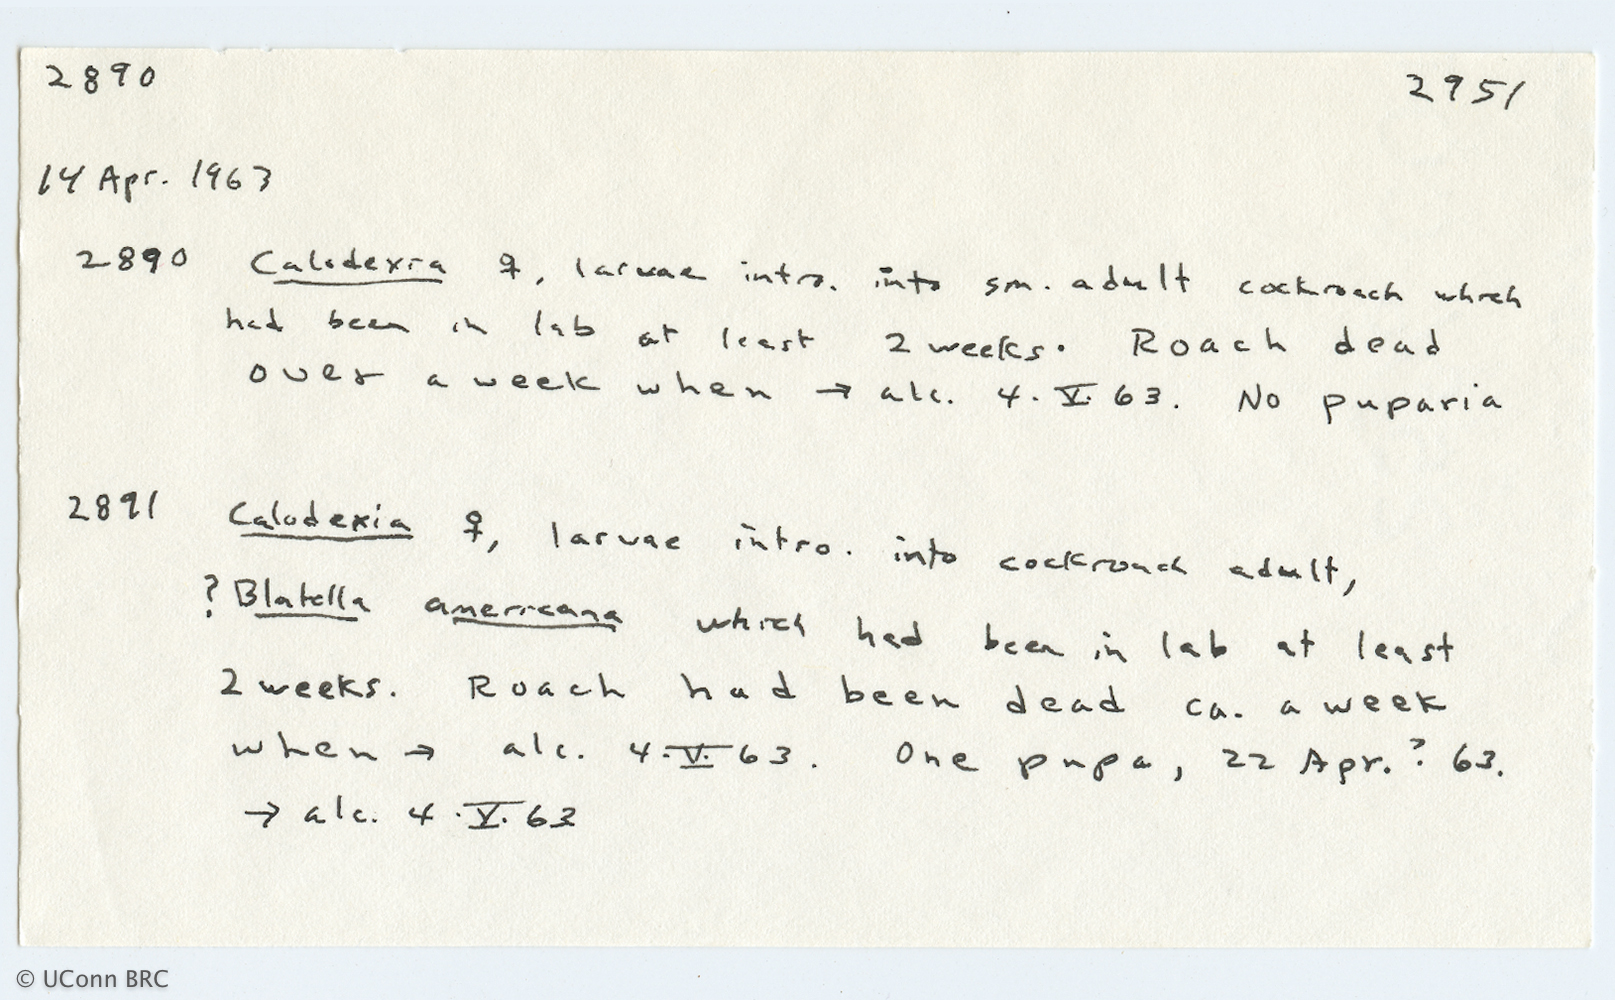 2890 2951
14 Apr. 1963
2890 Calodexia ♀, larvae intro. into sm. adult cockroach which
had been in lab at least 2 weeks. Roach dead
over a week when → alc. 4.V.63. No puparia
2891 Calodexia ♀, larvae intro. into cockroach adult,
? Blatella americana which had been in lab at least
2 weeks. Roach had been dead ca. a week
when → alc. 4.V.63. One pupa, 22 Apr.? 63.
→ alc. 4.V.63
© UConn BRC